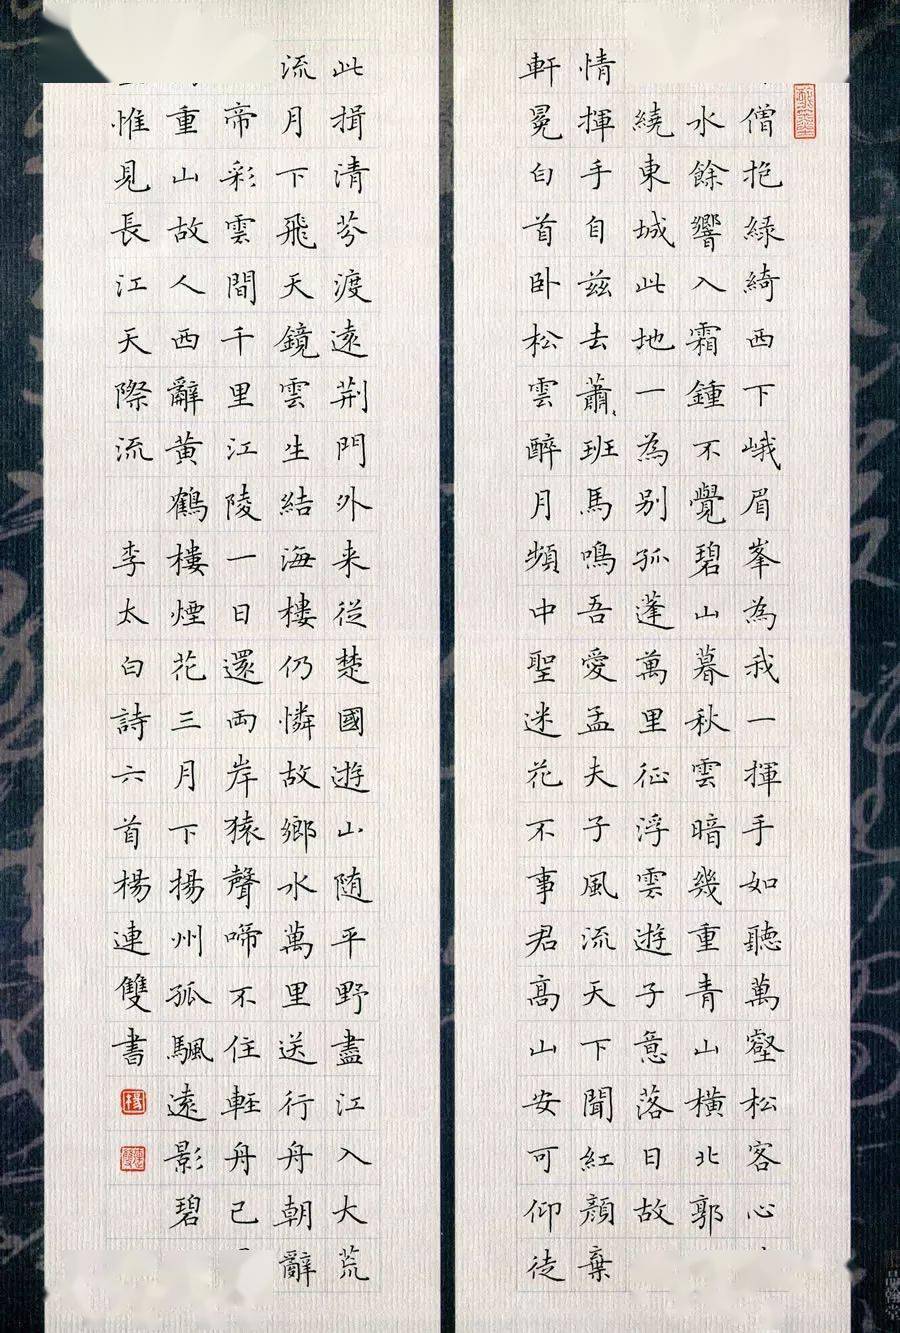 僧抱綠綺西下峨眉峯為我一揮手如聽萬壑松客心
水餘響入霜鍾不覺碧山暮秋雲暗幾重青山橫北郭
繞東城此地一為别孤蓬萬里征浮雲遊子意落日故
情揮手自茲去蕭〻班馬鳴吾愛孟夫子風流天下聞紅顏棄
軒冕白首卧松雲醉月頻中聖迷花不事君高山安可仰徒
此揖清芬渡遠荆門外来從楚國遊山随平野盡江入大荒
流月下飛天鏡雲生結海樓仍憐故鄉水萬里送行舟朝辭
帝彩雲間千里江陵一日還兩岸猿聲啼不住輕舟已
重山故人西辭黃鶴樓煙花三月下揚州孤颿遠影碧
惟見長江天際流 李太白詩六首楊連雙書
楊